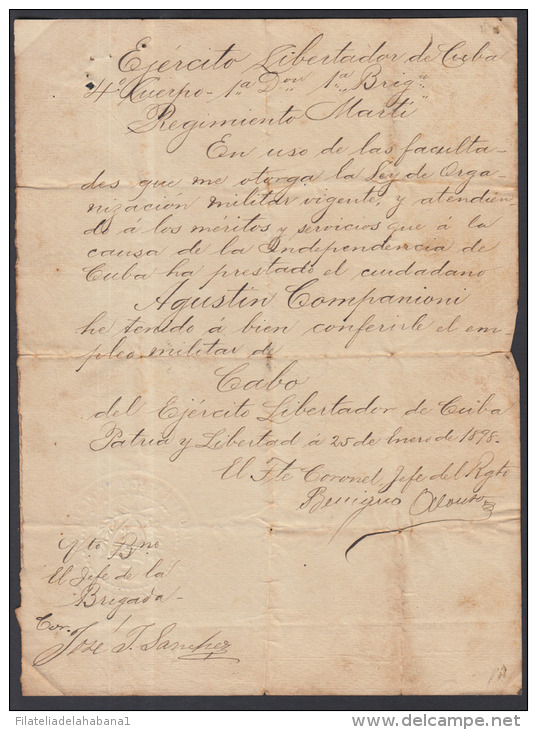 Ejército Libertador de Cuba
4º Cuerpo - 1ª Don 1ª Brigª
Regimiento "Martí"
En uso de las faculta-
des que me otorga la Ley de Orga-
nizacion militar vigente, y atendien
do á los méritos y servicios que á la
causa de la Independencia de
Cuba ha prestado el ciudadano
Agustin Companioni
he tenido a bien conferirle el em-
pleo militar de
Cabo
del Ejército Libertador de Cuba
Patria y Libertad á 25 de Enero de 1898-
El Tte Coronel Jefe del Rgto
Benigno
Vto Bno
El Jefe de la
Brigada-
Cor.
José J. Sanchez
Filateliadelahabana1
www.delcampe.net